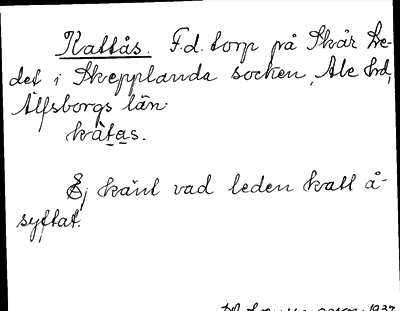 Kattås. F.d. torp på Skår Tre-
det i Skepplanda socken, Ale hrd,
Älfsborgs län.
kàtas.
Ej känt vad leden katt å-
syftat.
1937